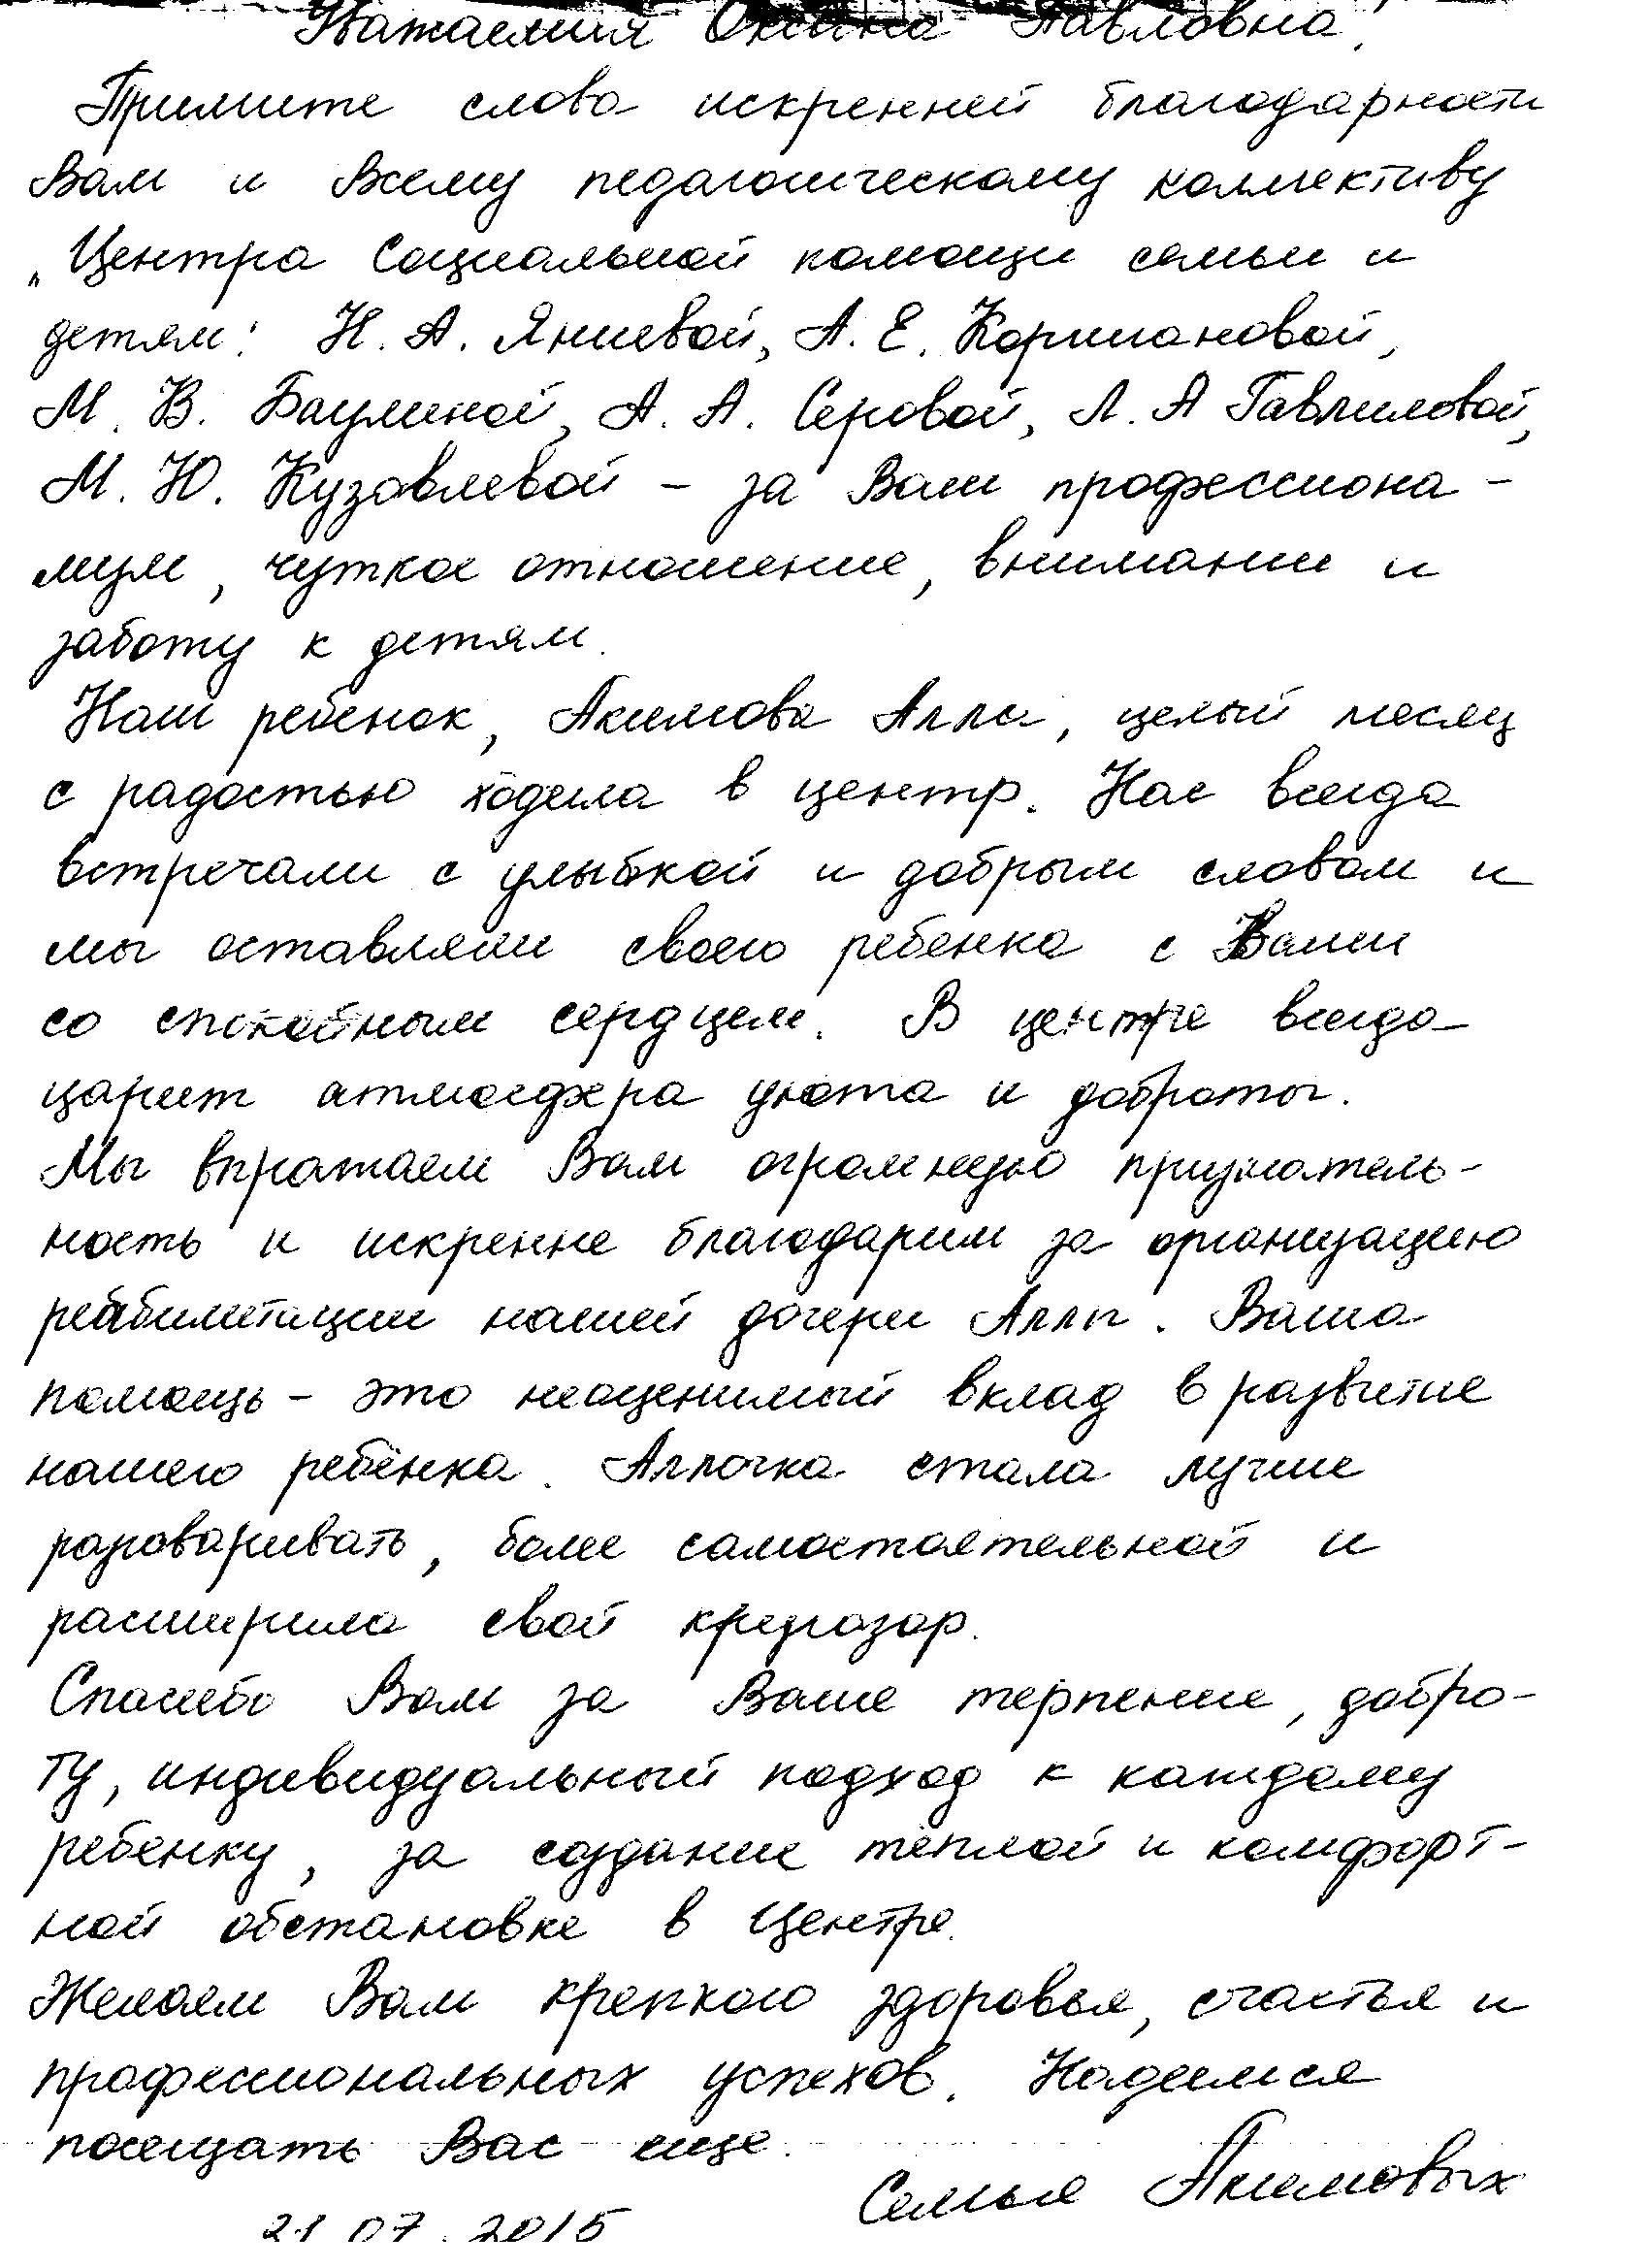 Уважаемая Оксана Павловна!
Примите слова искренней благодарности
Вам и Всему педагогическому коллективу
„Центра Социальной помощи семьи и
детям: Н. А. Яншевой, А. Е. Коршановой,
М. В. Баулиной, А. А. Серовой, Л. А Гаврииловой,
М. Ю. Кузовлевой – за Ваш профессиона-
лизм, чуткое отношение, внимание и
заботу к детям.
Наш ребенок, Акимова Алла, целый месяц
с радостью ходила в центр. Нас всегда
встречали с улыбкой и добрым словом и
мы оставляли своего ребенка с Вами
со спокойным сердцем. В центре всегда
царит атмосфера уюта и доброты.
Мы выражаем Вам огромную признатель-
ность и искренне благодарим за организацию
реабилитации нашей дочери Аллы. Ваша
помощь – это неоценимый вклад в развитие
нашего ребёнка. Аллочка стала лучше
разговаривать, более самостоятельной и
расширила свой кругозор.
Спасибо Вам за Ваше терпение, добро-
ту, индивидуальный подход к каждому
ребенку, за создание тёплой и комфорт-
ной обстановке в Центре.
Желаем Вам крепкого здоровья, счастья и
профессиональных успехов. Надеимся
посещать Вас еще.
Семья Акимовых
21.07.2015